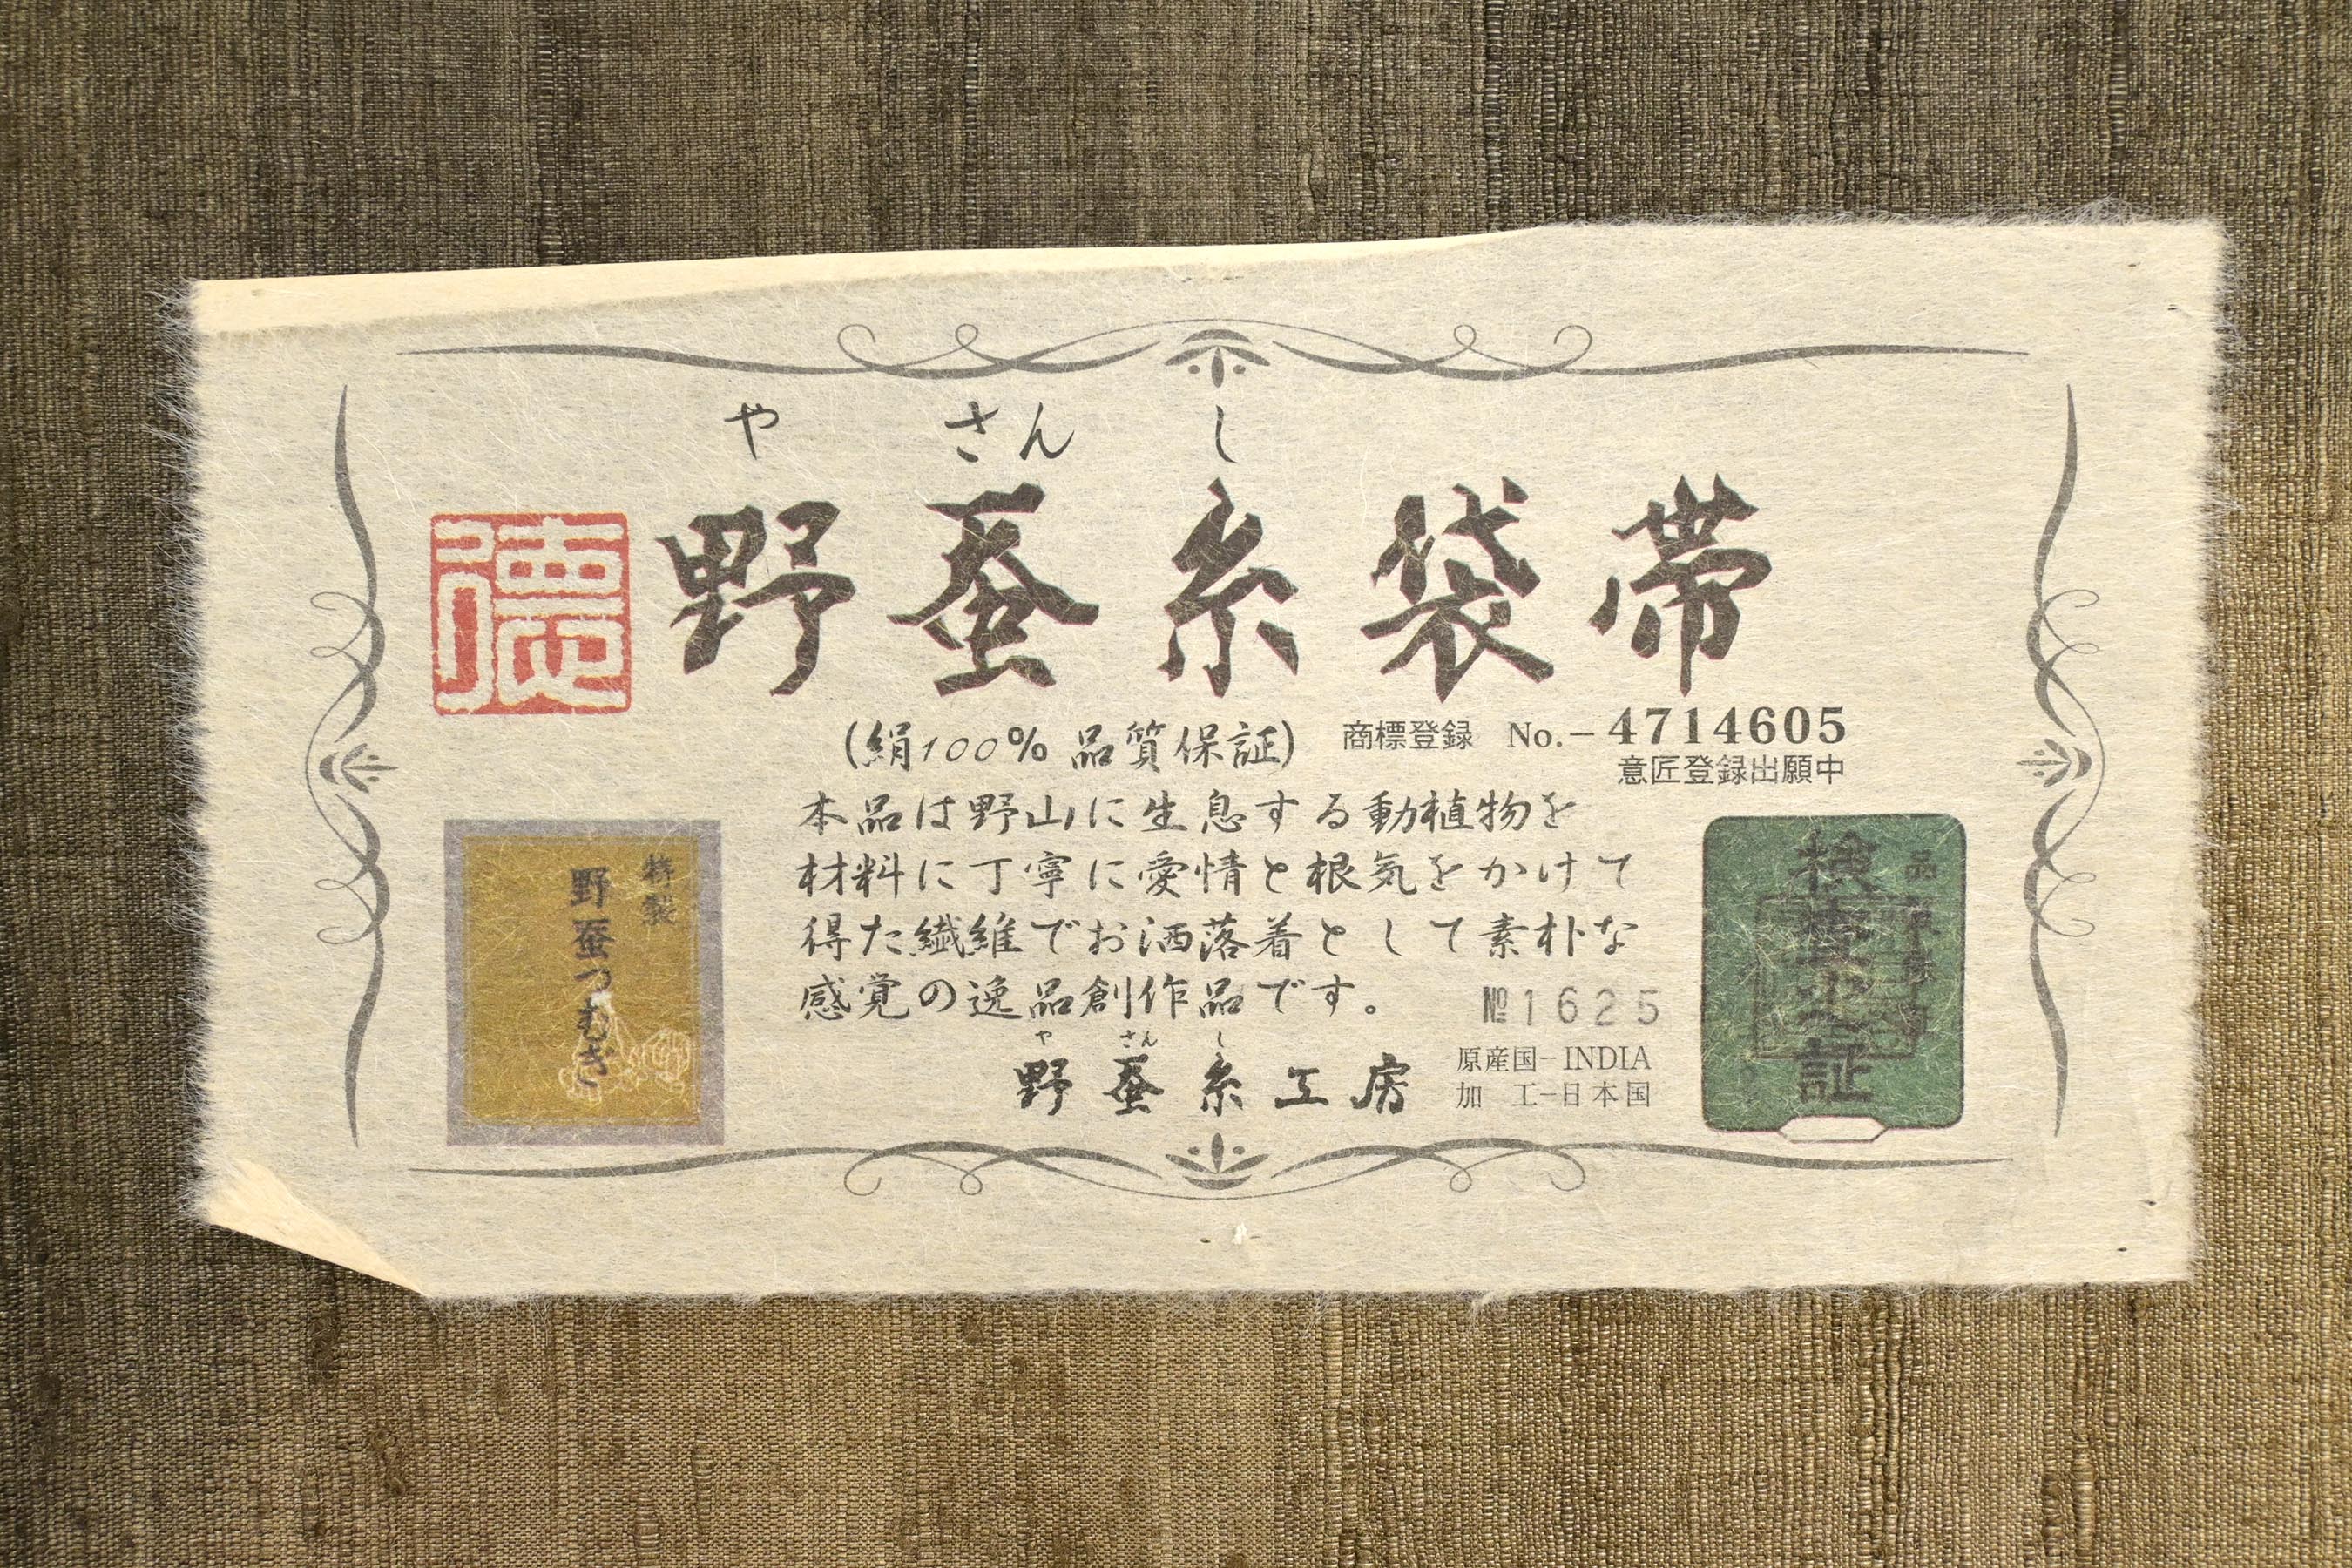 や さん し
徳
野蚕糸袋帯
(絹100% 品質保証)
商標登録 No.–4714605
意匠登録出願中
本品は野山に生息する動植物を
材料に丁寧に愛情と根気をかけて
得た繊維でお洒落着として素朴な
感覚の逸品創作品です。
№1625
や さん し
野蚕糸工房
原産国–INDIA
加 工–日本国
特製
野蚕つむぎ
検査之証